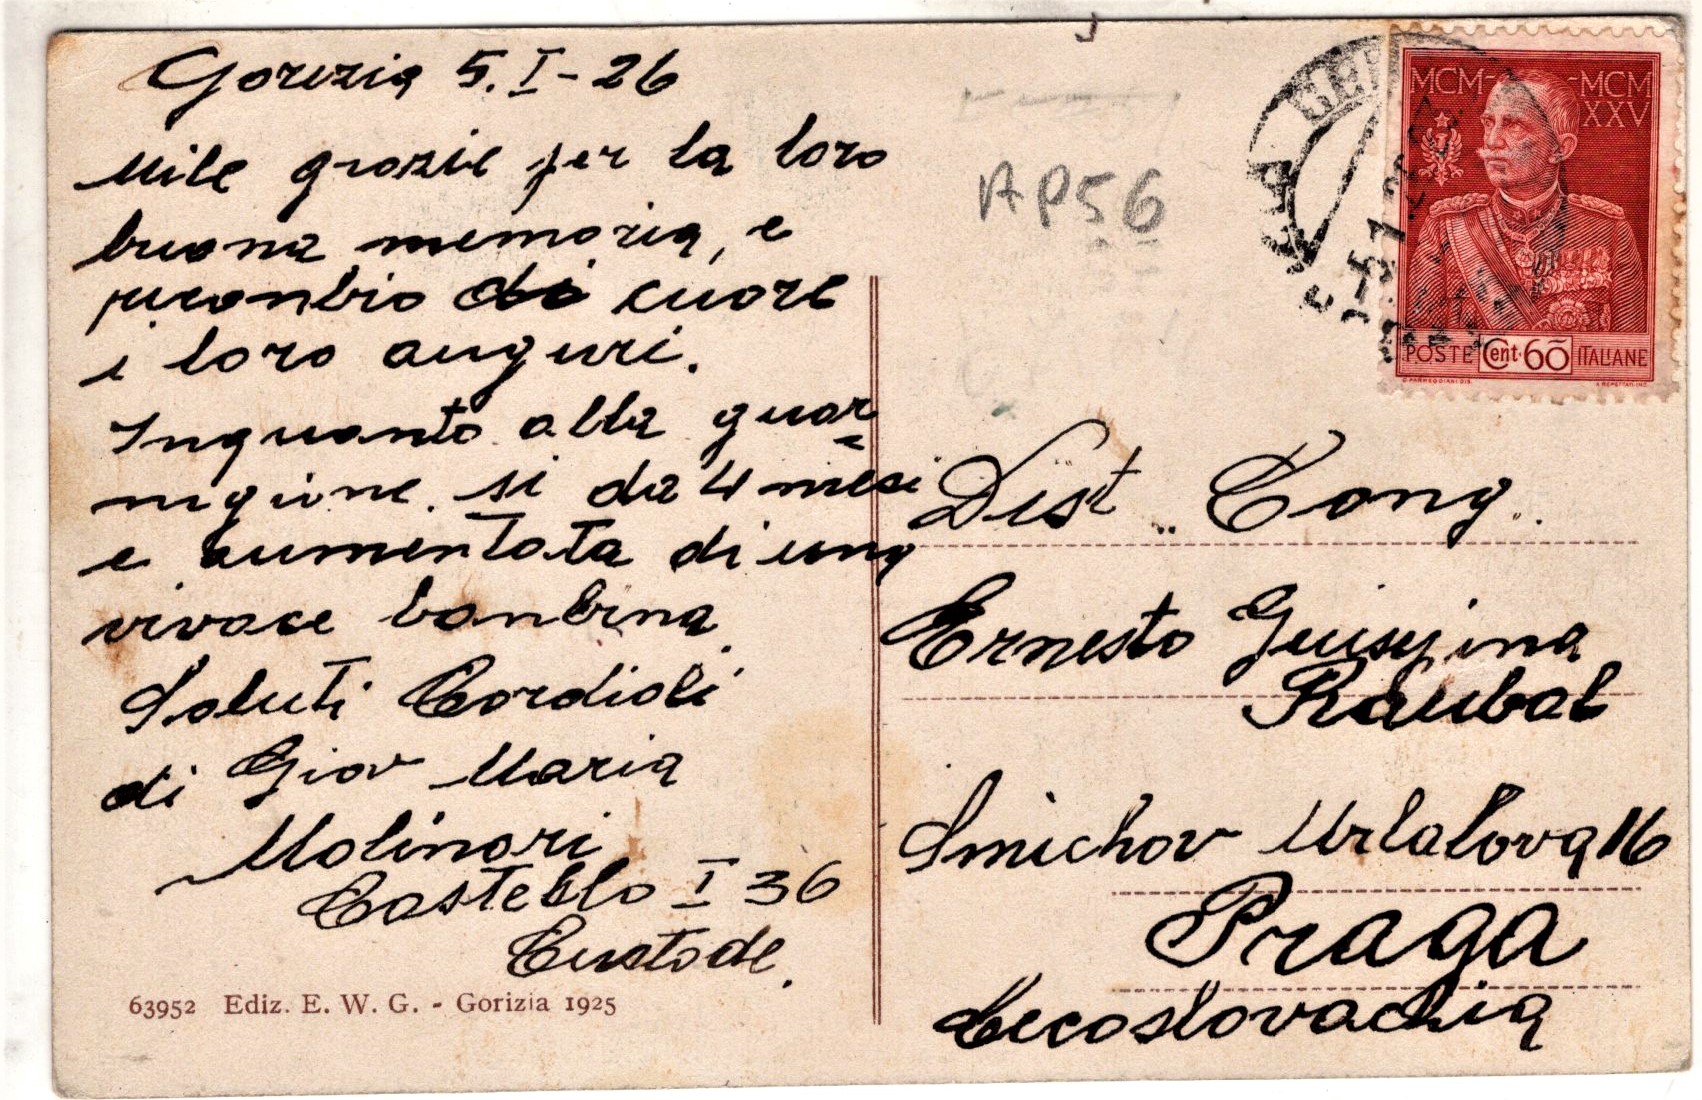 Gorizia 5.I-26
Mile grazie per la loro
buona memoria, e
ricanbio di cuore
i loro auguri.
Inquanto alla guar
nigione. si da 4 mesi
e aumentata di una
vivace banbina
Saluti Cordioli
di Giov Maria
Molinari
Castello I 36
Custode.
63952 Ediz. E. W. G. - Gorizia 1925
AP56
MCM- -MCM
XXV
POSTE Cent. 60 ITALIANE
Dist. Cong.
Ernesto Guisepina
Raubal
Smichov Urlalova 16
Praga
Cecoslovachia